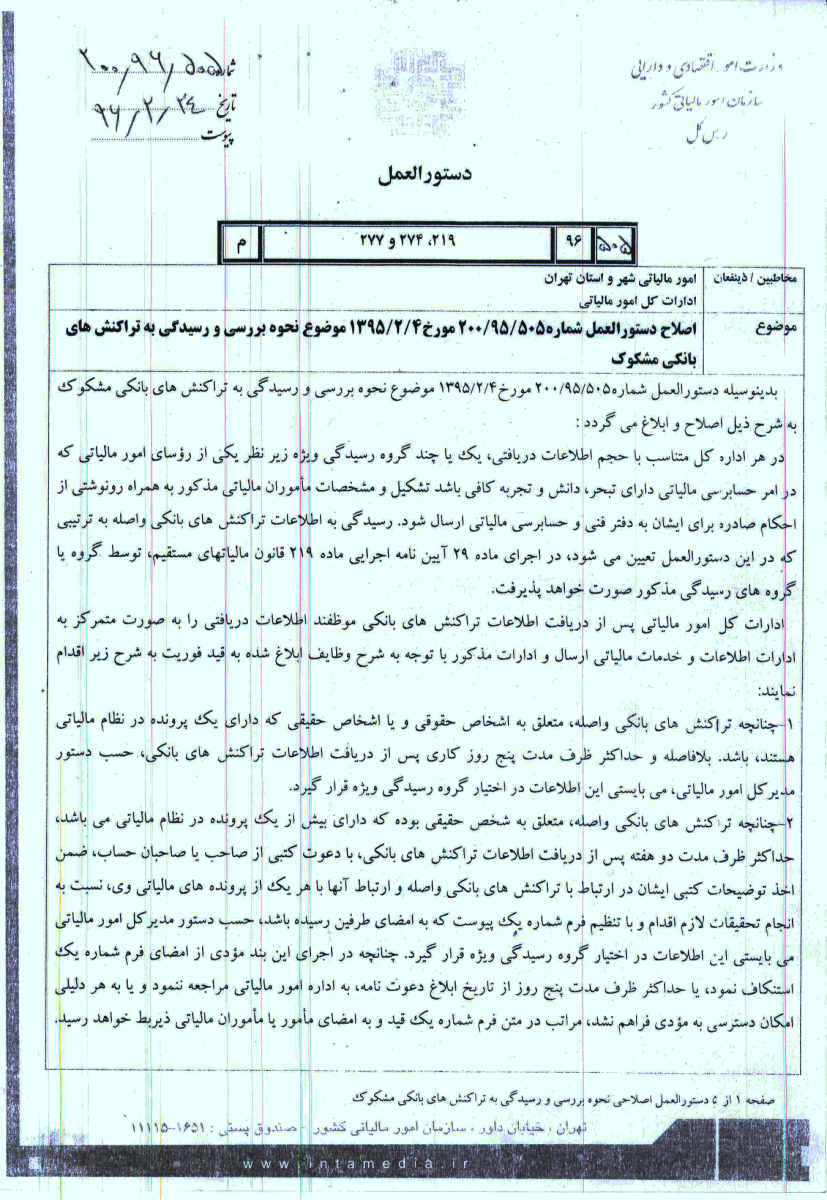 وزارت امور اقتصادی و دارایی
سازمان امور مالیاتی کشور
رئیس کل
شماره ۲۰۰/۹۶/۵۰۵
تاریخ ۹۶/۲/۲۴
پیوست
دستورالعمل
۵۰۵ ۹۶ ۲۱۹، ۲۷۴ و ۲۷۷ م
مخاطبین / ذینفعان امور مالیاتی شهر و استان تهران
ادارات کل امور مالیاتی
موضوع اصلاح دستورالعمل شماره۲۰۰/۹۵/۵۰۵ مورخ۱۳۹۵/۲/۴ موضوع نحوه بررسی و رسیدگی به تراکنش های
بانکی مشکوک
بدینوسیله دستورالعمل شماره۲۰۰/۹۵/۵۰۵ مورخ۱۳۹۵/۲/۴ موضوع نحوه بررسی و رسیدگی به تراکنش های بانکی مشکوک
به شرح ذیل اصلاح و ابلاغ می گردد :
در هر اداره کل متناسب با حجم اطلاعات دریافتی، یک یا چند گروه رسیدگی ویژه زیر نظر یکی از رؤسای امور مالیاتی که
در امر حسابرسی مالیاتی دارای تبحر، دانش و تجربه کافی باشد تشکیل و مشخصات مأموران مالیاتی مذکور به همراه رونوشتی از
احکام صادره برای ایشان به دفتر فنی و حسابرسی مالیاتی ارسال شود. رسیدگی به اطلاعات تراکنش های بانکی واصله به ترتیبی
که در این دستورالعمل تعیین می شود، در اجرای ماده ۲۹ آیین نامه اجرایی ماده ۲۱۹ قانون مالیاتهای مستقیم، توسط گروه یا
گروه های رسیدگی مذکور صورت خواهد پذیرفت.
ادارات کل امور مالیاتی پس از دریافت اطلاعات تراکنش های بانکی موظفند اطلاعات دریافتی را به صورت متمرکز به
ادارات اطلاعات و خدمات مالیاتی ارسال و ادارات مذکور با توجه به شرح وظایف ابلاغ شده به قید فوریت به شرح زیر اقدام
نمایند:
۱-چنانچه تراکنش های بانکی واصله، متعلق به اشخاص حقوقی و یا اشخاص حقیقی که دارای یک پرونده در نظام مالیاتی
هستند، باشد. بلافاصله و حداکثر ظرف مدت پنج روز کاری پس از دریافت اطلاعات تراکنش های بانکی، حسب دستور
مدیرکل امور مالیاتی، می بایستی این اطلاعات در اختیار گروه رسیدگی ویژه قرار گیرد.
۲-چنانچه تراکنش های بانکی واصله، متعلق به شخص حقیقی بوده که دارای بیش از یک پرونده در نظام مالیاتی می باشد،
حداکثر ظرف مدت دو هفته پس از دریافت اطلاعات تراکنش های بانکی، با دعوت کتبی از صاحب یا صاحبان حساب، ضمن
اخذ توضیحات کتبی ایشان در ارتباط با تراکنش های بانکی واصله و ارتباط آنها با هر یک از پرونده های مالیاتی وی، نسبت به
انجام تحقیقات لازم اقدام و با تنظیم فرم شماره یک پیوست که به امضای طرفین رسیده باشد، حسب دستور مدیرکل امور مالیاتی
می بایستی این اطلاعات در اختیار گروه رسیدگی ویژه قرار گیرد. چنانچه در اجرای این بند مؤدی از امضای فرم شماره یک
استنکاف نمود، یا حداکثر ظرف مدت پنج روز از تاریخ ابلاغ دعوت نامه، به اداره امور مالیاتی مراجعه ننمود و یا به هر دلیلی
امکان دسترسی به مؤدی فراهم نشد، مراتب در متن فرم شماره یک قید و به امضای مأمور یا مأموران مالیاتی ذیربط خواهد رسید.
صفحه ۱ از ۵ دستورالعمل اصلاحی نحوه بررسی و رسیدگی به تراکنش های بانکی مشکوک
تهران ، خیابان داور ، سازمان امور مالیاتی کشور - صندوق پستی : ۱۶۵۱-۱۱۱۱۵
www.intamedia.ir